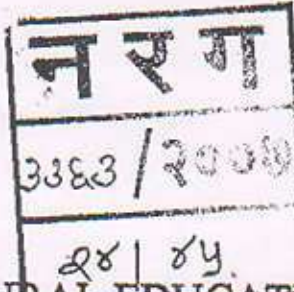 न र ग
३३६३ / २००७
२४ | ४५
RAL EDUCAT